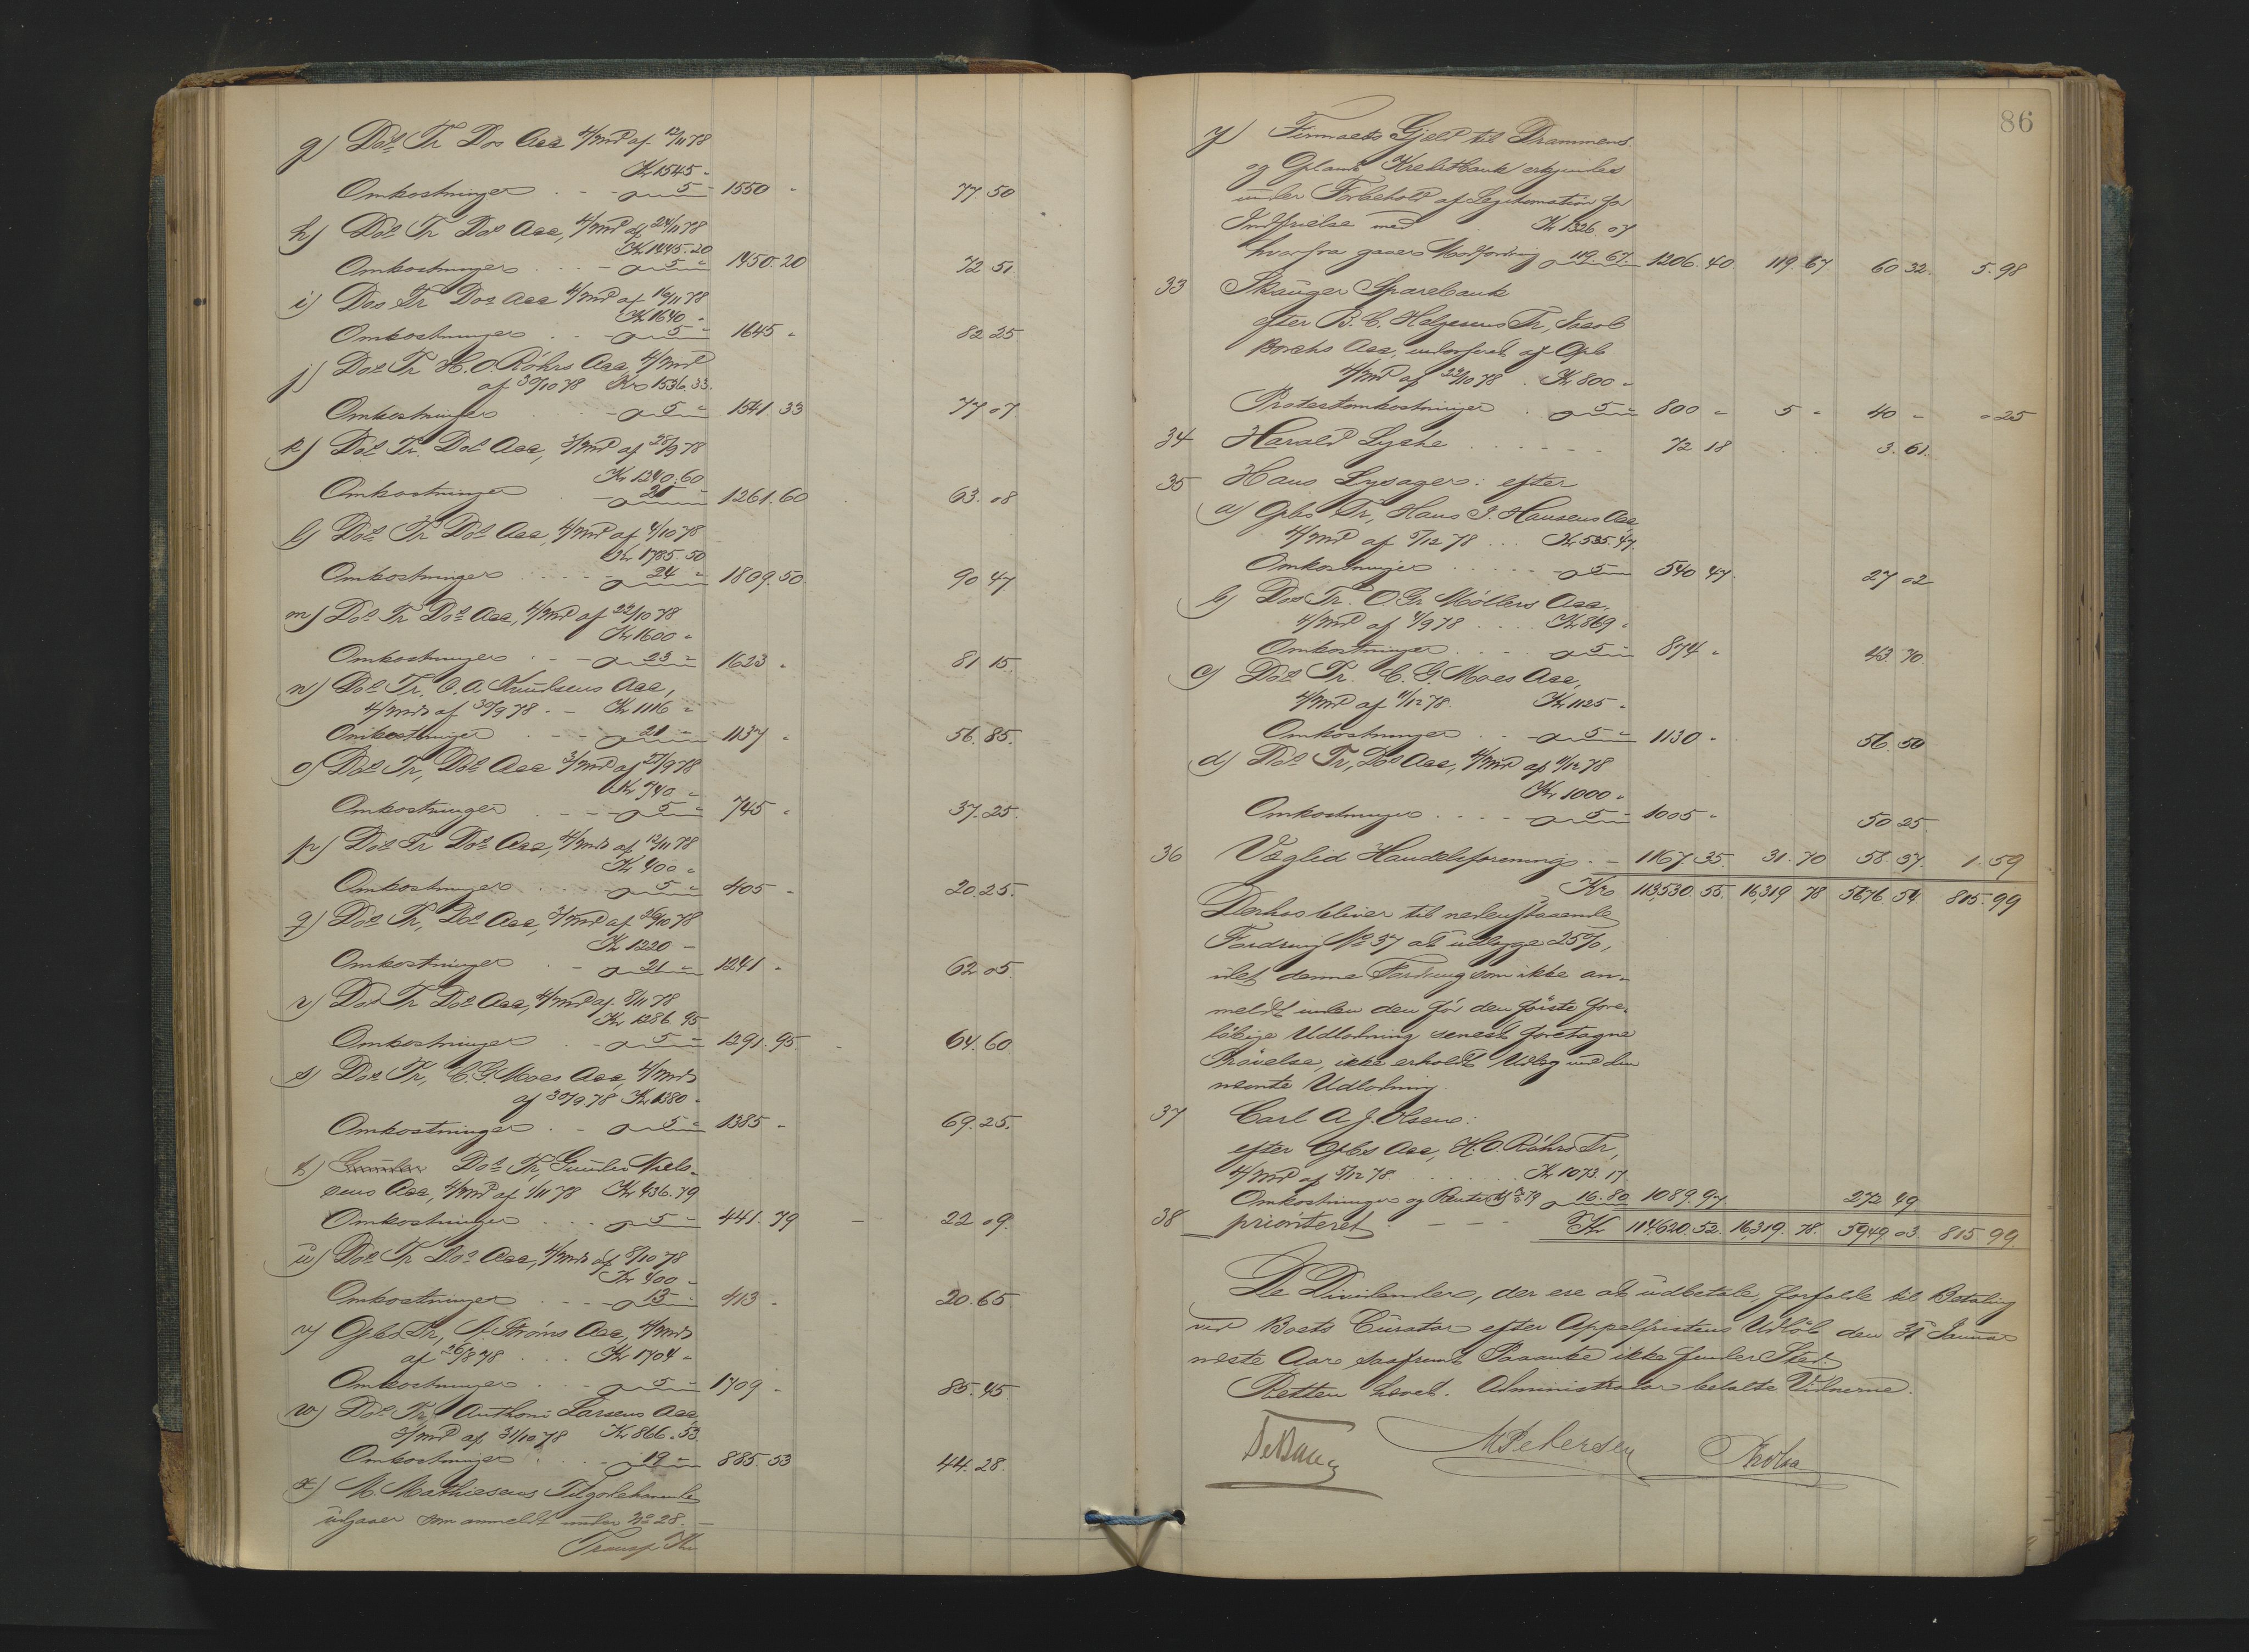 g) Do's Tr Dos Acc 4/md af 12/11 78
Kr 1545 "
Omkostninger . . - " 5 - 1550 - 77 50
h) Do's Tr Do's Acc, 4/md af 24/11 78
Kr 1445.20
Omkostninger . . . - " 5 " 1450.20 72 51
i) Dos Tr Dos Acc 4/md af 16/11 78
Kr 1640 "
Omkostninger . . - " 5 " 1645 - 82 25
j) Do's Tr H. O. Röhrs Acc, 4/md
af 30/10 78 Kr 1536.33.
Omkostninger - " 5 " 1541.33 77 07
k) Do's Tr. Do's Acc, 3/md af 28/9 78
Kr 1240.60
Omkostninger - 21 - 1261.60 63.08
l) Do's Tr Do's Acc, 4/md af 4/10 78
Kr 1785.50
Omkostninger . . . - 24 " 1809.50 90 47
m) Do's Tr Do's Acc, 4/md af 22/10 78
Kr 1600 "
Omkostninger . - - 23 " 1623 - 81 15.
n) Do's Tr. O. A. Knudsens Acc,
4/mds af 30/9 78 . - Kr 1116 "
Omkostninger . - - 21 " 1137 - 56.85.
o) Do's Tr, Do's Acc 3/md af 27/9 78
Kr 740 "
Omkostninger . - - 5 " 745 - 37.25.
p) Do's Tr Do's Acc, 4/mds af 12/11 78
Kr 400 "
Omkostninger . . . 5 " 405 - 20.25.
q) Do's Tr, Do's Acc, 3/md af 26/10 78
Kr 1220 -
Omkostninger . - 21 " 1241 - 62 05.
r) Do's Tr Do's Acc, 4/md af 8/11 78
Kr 1286 95
Omkostninger . - 5 - 1291.95. 64.60
s) Do's Tr, C. G. Moes Acc, 4/mds
af 30/9 78 Kr 1380 -
Omkostninger . - 5 " 1385 - 69.25.
t) Gunder Do's Tr, Gunder Niel-
sens Acc, 4/md af 1/11 78 Kr 436.79
Omkostninger . . . 5 - 441.79 - 22 09.
u) Do's Tr Do's Acc, 4/mds af 8/10 78
Kr 400 -
Omkostninger . . - 13 - 413 - 20.65
v) Opbs Tr, A. Ströms Acc, 4/mds
af 26/8 78 . . . Kr 1704 -
Omkostninger . - 5 - 1709 - 85.45
w) Do's Tr, Anthoni Larsens Acc,
3/md af 31/10 78 Kr 866.53
Omkostninger . - 19 - 885.53 44.28.
x) M. Mathiesens Tilgodehavende
udgaaer som anmeldt under No 28. -
Transp Kr
86
y) Firmaets Gjeld til Drammens
og Oplands Kreditbank erkjendes
under Forbehold af Legitimation for
Indfrielse med Kr 1326.07
hvorfra gaaer Modfordring " 119.67. 1206.40 119.67 60 32. 5.98
33 Skauger Sparebank
efter B. C. Helgesens Tr, Jacob
Borchs Acc, endosseret af Opb
4/md af 22/10 78 . Kr 800 "
Protestomkostninger . 5 " 800 " 5 " 40 - " 25
34 Harald Lyche . . . . . . 72 18 . . 3.61.
35 Hans Lysager: efter
a) Opbs Tr, Hans J. Hansens Acc
4/md af 5/12 78 . . Kr 535.47.
Omkostninger . . . . 5 - 540 47. 27 02
b) Dos Tr. O. Gr. Möllers Acc.
4/md af 4/9 78 . . . . Kr 869 "
Omkostninger . . . 5 - 874 " 43.70
c) Do's Tr. C. G. Moes Acc,
4/md af 11/12 78. Kr 1125 "
Omkostninger . . - 5 " 1130 - 56.50
d) Do's Tr, Do's Acc, 4/md af 11/12 78
Kr 1000 "
Omkostninger . . . 5 " 1005 " 50 25.
36 Veglid Handelsforening . - 1167.35. 31.70 58.37. 1.59
Kr 113,530.55. 16,319 78 5676.54 815.99
Derhos bliver til nedenstaaende
Fordring No 37 at udlægge 25%,
idet denne Fordring som ikke an-
meldt inden den for den første fore-
løbige Udlodning senest foretagne
Prøvelse, ikke erholdt Udlæg ved den
nævnte Udlodning.
37 Carl A. J. Olsen:
efter Opbs Acc, H. O. Röhrs Tr,
4/md af 5/12 78 . . . . . Kr 1073.17
Omkostninger og Renter 16.80 1089.97 272 49
38 prioriteret - - - Kr 114,620.52. 16,319.78. 5949.03. 815.99.
De Dividender, der ere at udbetale, forfalde til Betaling
ved Boets Curator efter Appelfristens Udløb den 31 Januar
næste Aar, saafremt Paaanke ikke finder Sted.
Retten hævet. Administrator betalte Vidnerne.
M Pedersen